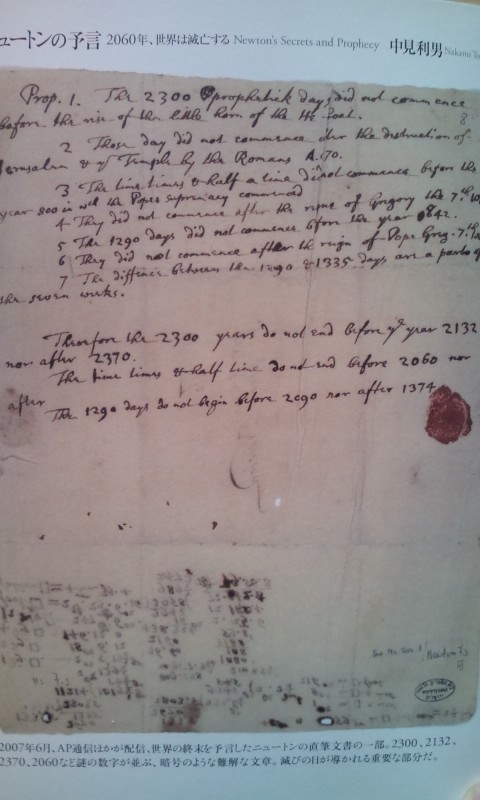 ュートンの予言 2060年、世界は滅亡する Newton's Secrets and Prophecy 中見利男 Nakami To
Prop. 1. The 2300 prophetick days did not commence
before the rise of the little horn of the He Goat.
8
2 Those day did not commence after the destruction of
Jerusalem & ye Temple by the Romans A. 70.
3 The time times & half a time did not commence before the
year 800 in wch the Popes supremacy commenced
4 They did not commence after the reigne of Gregory the 7th
5 The 1290 days did not commence before the year 842.
6 They did not commence after the reign of Pope Greg. 7th
7 The diffence between the 1290 & 1335 days are a parts of
the seven weeks.
Therefore the 2300 years do not end before ye year 2132
nor after 2370.
The time times & half time do not end before 2060 nor
after
The 1290 days do not begin before 2090 nor after 1374
Newton
2007年6月、AP通信ほかが配信、世界の終末を予言したニュートンの直筆文書の一部。2300、2132、
2370、2060など謎の数字が並ぶ、暗号のような難解な文章。滅びの日が導かれる重要な部分だ。